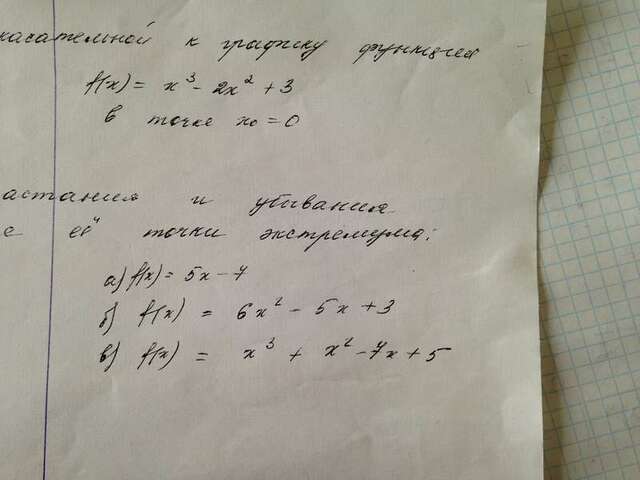 касательной к графику функции
f(x) = x³ - 2x² + 3
в точке x₀ = 0
астания и убывания
е её точки экстремума:
а) f(x) = 5x - 7
б) f(x) = 6x² - 5x + 3
в) f(x) = x³ + x² - 7x + 5